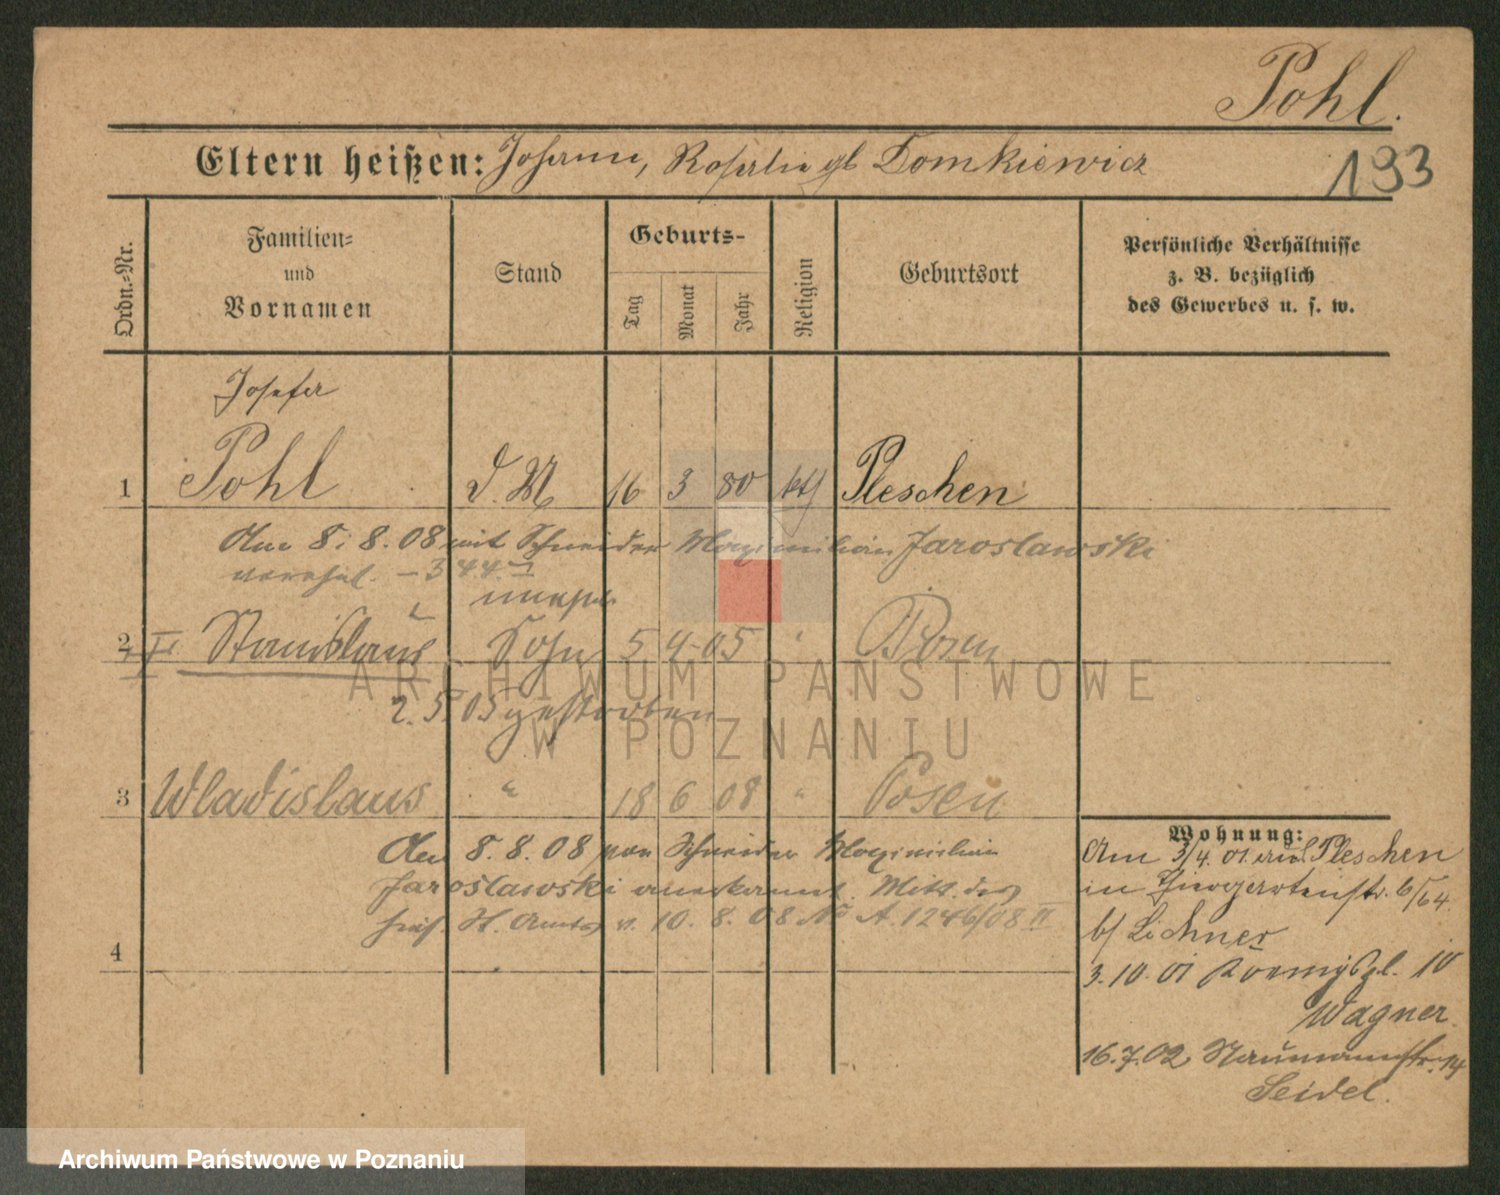 Pohl.
Eltern heißen: Johann, Rosalie gb Domkiewicz
193
Ordn.-Nr.
Familien-
und
Vornamen
Stand
Geburts-
Tag
Monat
Jahr
Religion
Geburtsort
Persönliche Verhältnisse
z. B. bezüglich
des Gewerbes u. s. w.
Josefa
1 Pohl d. M 16 3 80 kth Pleschen
Am 8. 8. 08 mit Schneider Maximilian Jaroslawski
verehel. - 344
unehel.
2 Stanislaus Sohn 5 4 05 " Posen
2. 5. 05 gestorben
3 Wladislaus " 18 6 08 " Posen
Am 8. 8. 08 von Schneider Maximilian
Jaroslawski anerkannt. Mitt. des
hies. St. Amts v. 10. 8. 08 No A. 1246/08 II
4
Wohnung:
Am 3/4. 01. aus Pleschen
in Thiergartenstr. 6/64
b/ Lichner
3. 10. 01 Koenigspl. 10
Wagner.
16. 7. 02 Naumannstr. 14
Seidel.
ARCHIWUM PAŃSTWOWE
W POZNANIU
Archiwum Państwowe w Poznaniu